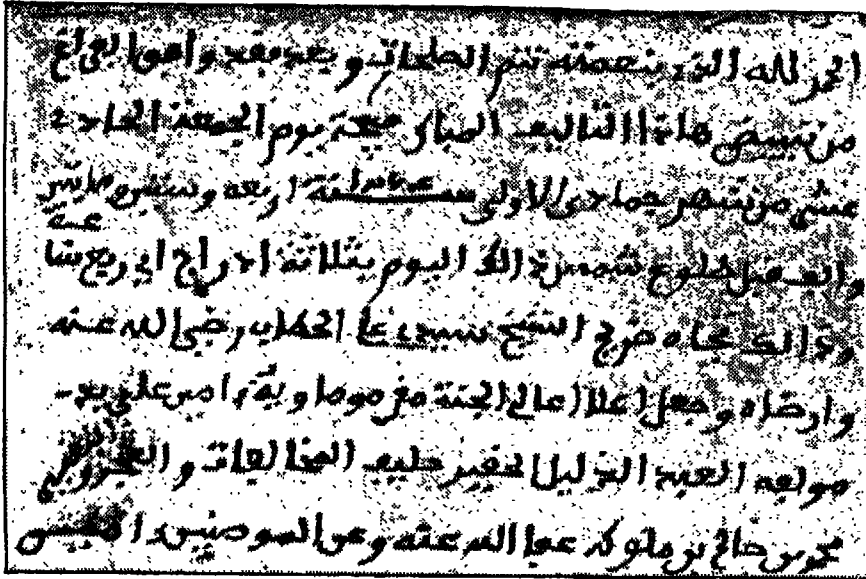 الحمد لله الذى بنعمته تتم الصلحات وبعد فقد وافق الفراغ
من تبييض هاذا التاليف المبارك صبيحة يوم الجمعة الحادى
عشر من شهر جمادى الاولى سنة اربعة وستين ومايتين
عام
والف قبل طلوع شمس ذالك اليوم بثلاثة ادراج اى ربع ساعة
وذالك تجاه ضريح الشيخ سيدى على الحطاب رضى الله عنه
وارضاه وجعل اعلا اعالى الجنة مقره وماويه امين على يد
مولفه العبد الذليل الحقير حليف المخالفات والعجز
محمد بن صالح بن ملوكه عفا الله عنه وعن المومنين امين